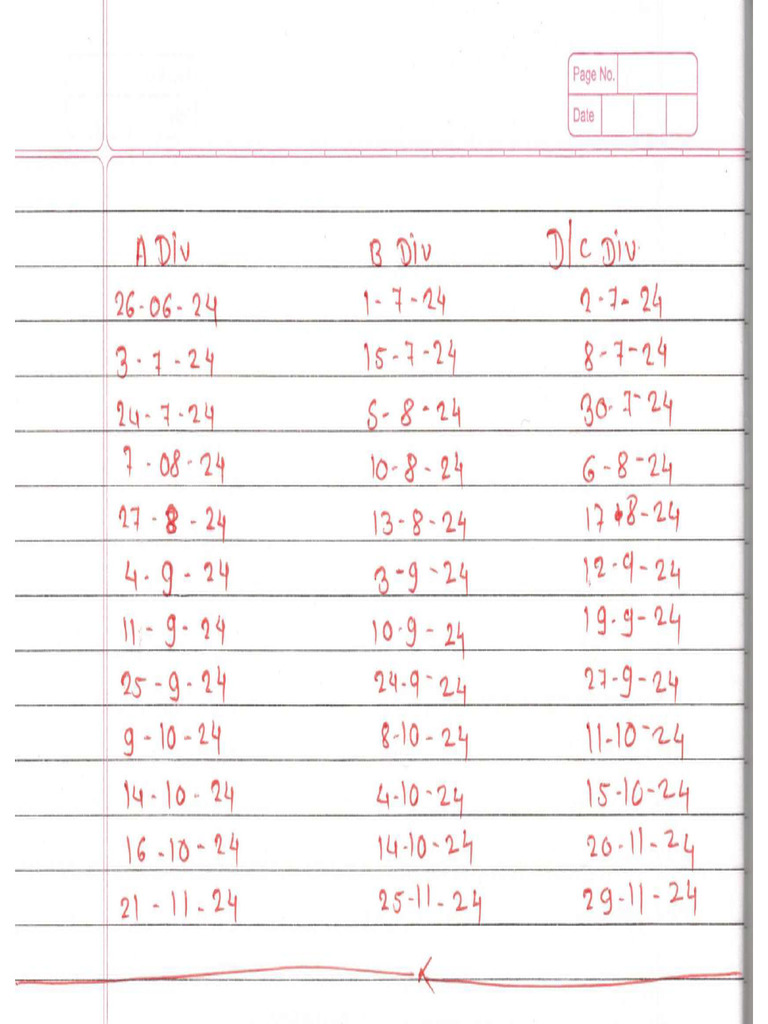 Page No.
Date
A Div B Div D/C Div
26-06-24 1-7-24 2-7-24
3-7-24 15-7-24 8-7-24
24-7-24 5-8-24 30-7-24
7-08-24 10-8-24 6-8-24
27-8-24 13-8-24 17-8-24
4-9-24 3-9-24 12-9-24
11-9-24 10-9-24 19-9-24
25-9-24 24-9-24 27-9-24
9-10-24 8-10-24 11-10-24
14-10-24 4-10-24 15-10-24
16-10-24 14-10-24 20-11-24
21-11-24 25-11-24 29-11-24